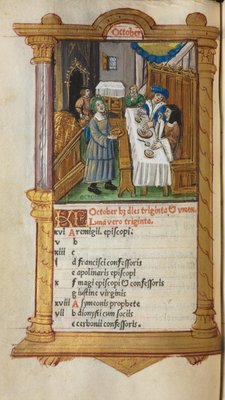 October
October hȝ dies triginta & vnum
Luna vero triginta.
xvi A remigii. episcopi.
v b
xiii c
ii d francisci confessoris
e apolinaris episcopi
x f magi episcopi & confessoris
g iustine virginis
xviii A symeonis prophete
vii b dionysii cum sociis
e cerbonii confessoris.